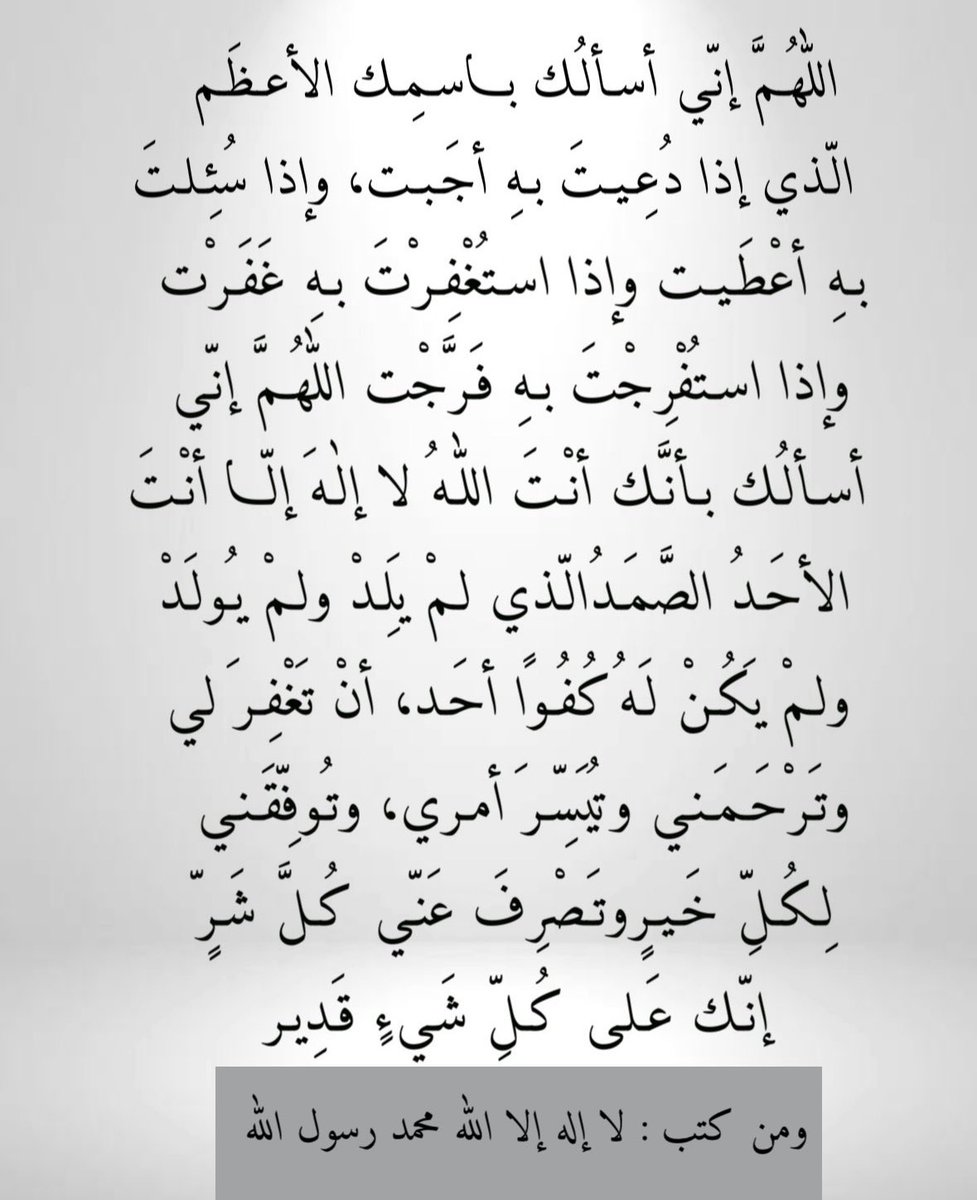 اللّٰهُمَّ إنّي أسألُك بـاسمِك الأعظَم
الّذي إذا دُعِيتَ بهِ أجَبت، وإذا سُئِلتَ
بهِ أعْطَيت وإذا استُغْفِرْتَ بهِ غَفَرْت
وإذا استُفْرِجْتَ بهِ فَرَّجْت اللّٰهُمَّ إنّي
أسألُك بأنَّك أنْتَ اللّٰهُ لا إلٰهَ إلّا أنْتَ
الأحَدُ الصَّمَدُالّذي لمْ يَلِدْ ولمْ يُولَدْ
ولمْ يَكُنْ لَهُ كُفُوًا أحَد، أنْ تَغْفِرَ لي
وتَرْحَمَني وتُيَسِّرَ أمري، وتُوفِّقَني
لِكُلِّ خَيرٍوتَصْرِفَ عَنّي كُلَّ شَرٍّ
إنّك عَلى كُلِّ شَيءٍ قَدِير
ومن كتب : لا إله إلا الله محمد رسول الله